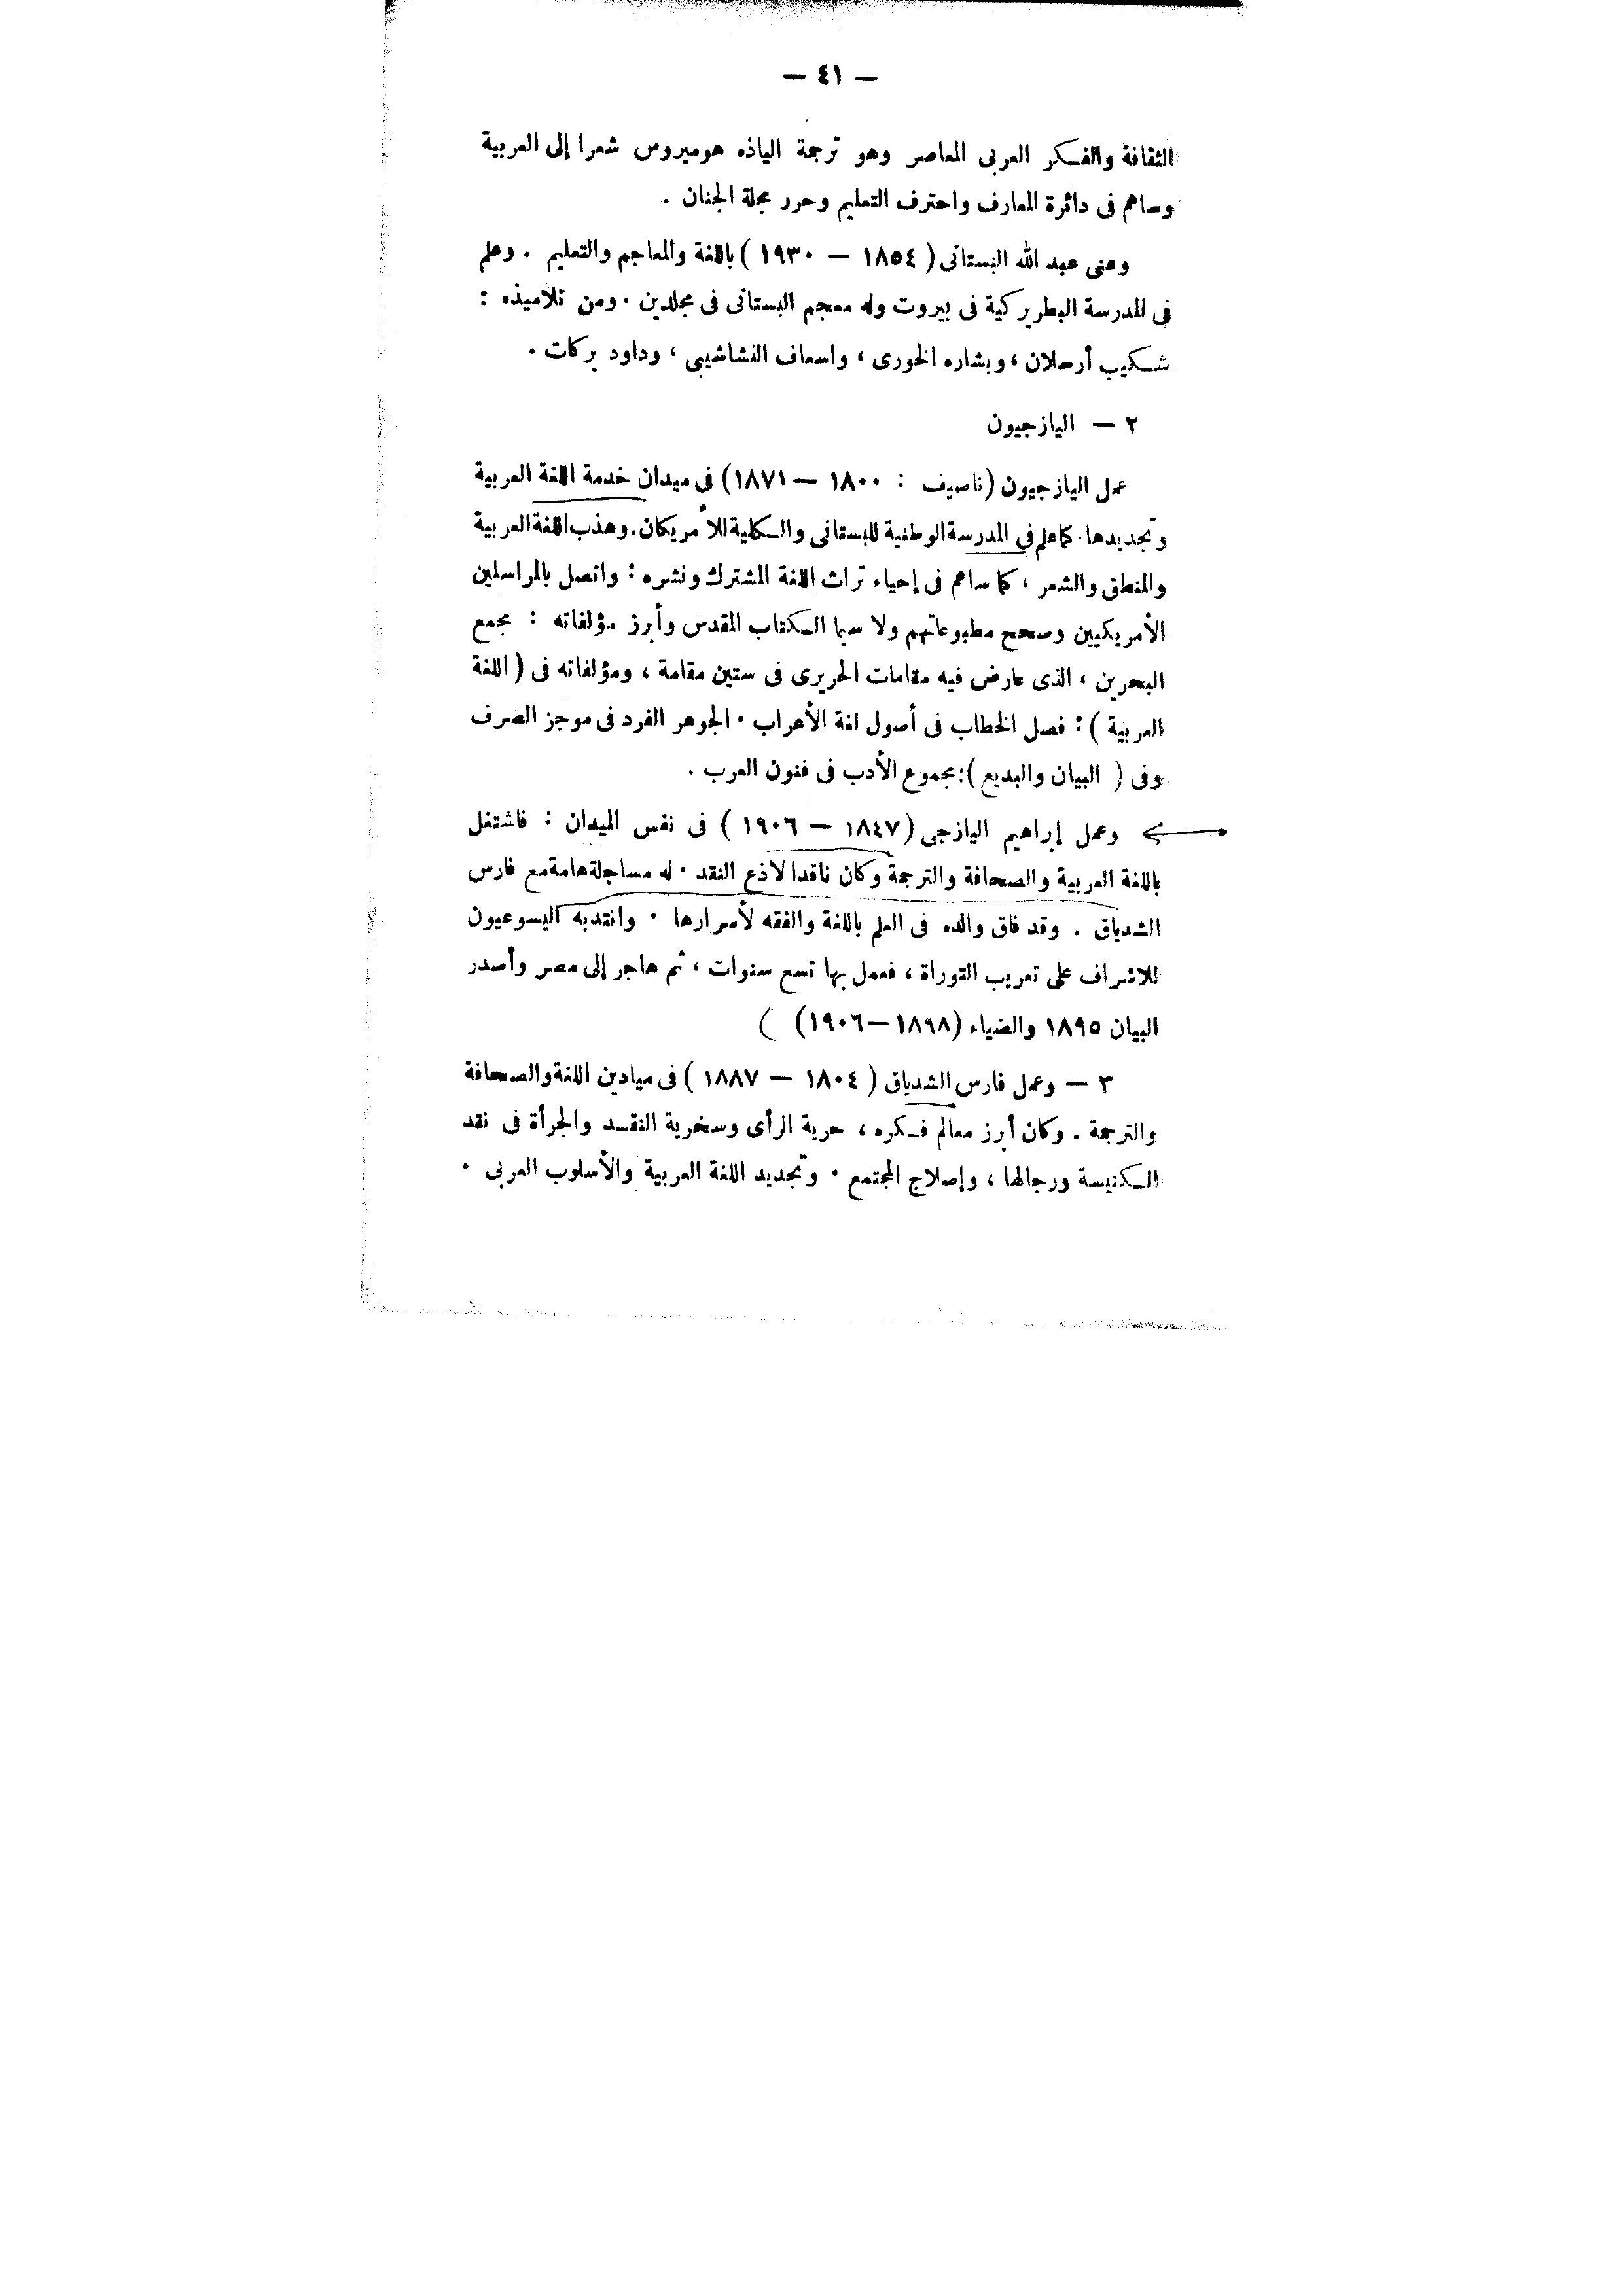 — ٤١ —
الثقافة والفكر العربى المعاصر وهو ترجمة الياذه هوميروس شعرا إلى العربية
وساهم فى دائرة المعارف واحترف التعليم وحرر مجلة الجنان .
وعنى عبد الله البستانى ( ١٨٥٤ — ١٩٣٠ ) باللغة والمعاجم والتعليم . وعلم
فى المدرسة البطريركية فى بيروت وله معجم البستانى فى مجلدين . ومن تلاميذه :
شكيب أرسلان ، وبشاره الخورى ، واسعاف النشاشيبى ، وداود بركات .
٢ — اليازجيون
عمل اليازجيون (ناصيف : ١٨٠٠ — ١٨٧١) فى ميدان خدمة اللغة العربية
وتجديدها . كما علم فى المدرسة الوطنية للبستانى والكلية للأمريكان . وهذب اللغة العربية
والمنطق والشعر ، كما ساهم فى إحياء تراث اللغة المشترك ونشره : واتصل بالمراسلين
الأمريكيين وصحح مطبوعاتهم ولا سيما الكتاب المقدس وأبرز مؤلفاته : مجمع
البحرين ، الذى عارض فيه مقامات الحريرى فى ستين مقامة ، ومؤلفاته فى ( اللغة
العربية ) : فصل الخطاب فى أصول لغة الأعراب . الجوهر الفرد فى موجز الصرف
وفى ( البيان والبديع ) : مجموع الأدب فى فنون العرب .
وعمل إبراهيم اليازجى ( ١٨٤٧ — ١٩٠٦ ) فى نفس الميدان : فاشتغل
باللغة العربية والصحافة والترجمة وكان ناقدا لاذع النقد . له مساجلة هامة مع فارس
الشدياق . وقد فاق والده فى العلم باللغة والفقه لأسرارها . وانتدبه اليسوعيون
للاشراف على تعريب التوراة ، فعمل بها تسع سنوات ، ثم هاجر إلى مصر وأصدر
البيان ١٨٩٥ والضياء (١٨٩٨ — ١٩٠٦)
٣ — وعمل فارس الشدياق ( ١٨٠٤ — ١٨٨٧ ) فى ميادين اللغة والصحافة
والترجمة . وكان أبرز معالم فكره ، حرية الرأى وسخرية النقد والجرأة فى نقد
الكنيسة ورجالها ، وإصلاح المجتمع . وتجديد اللغة العربية والأسلوب العربى .